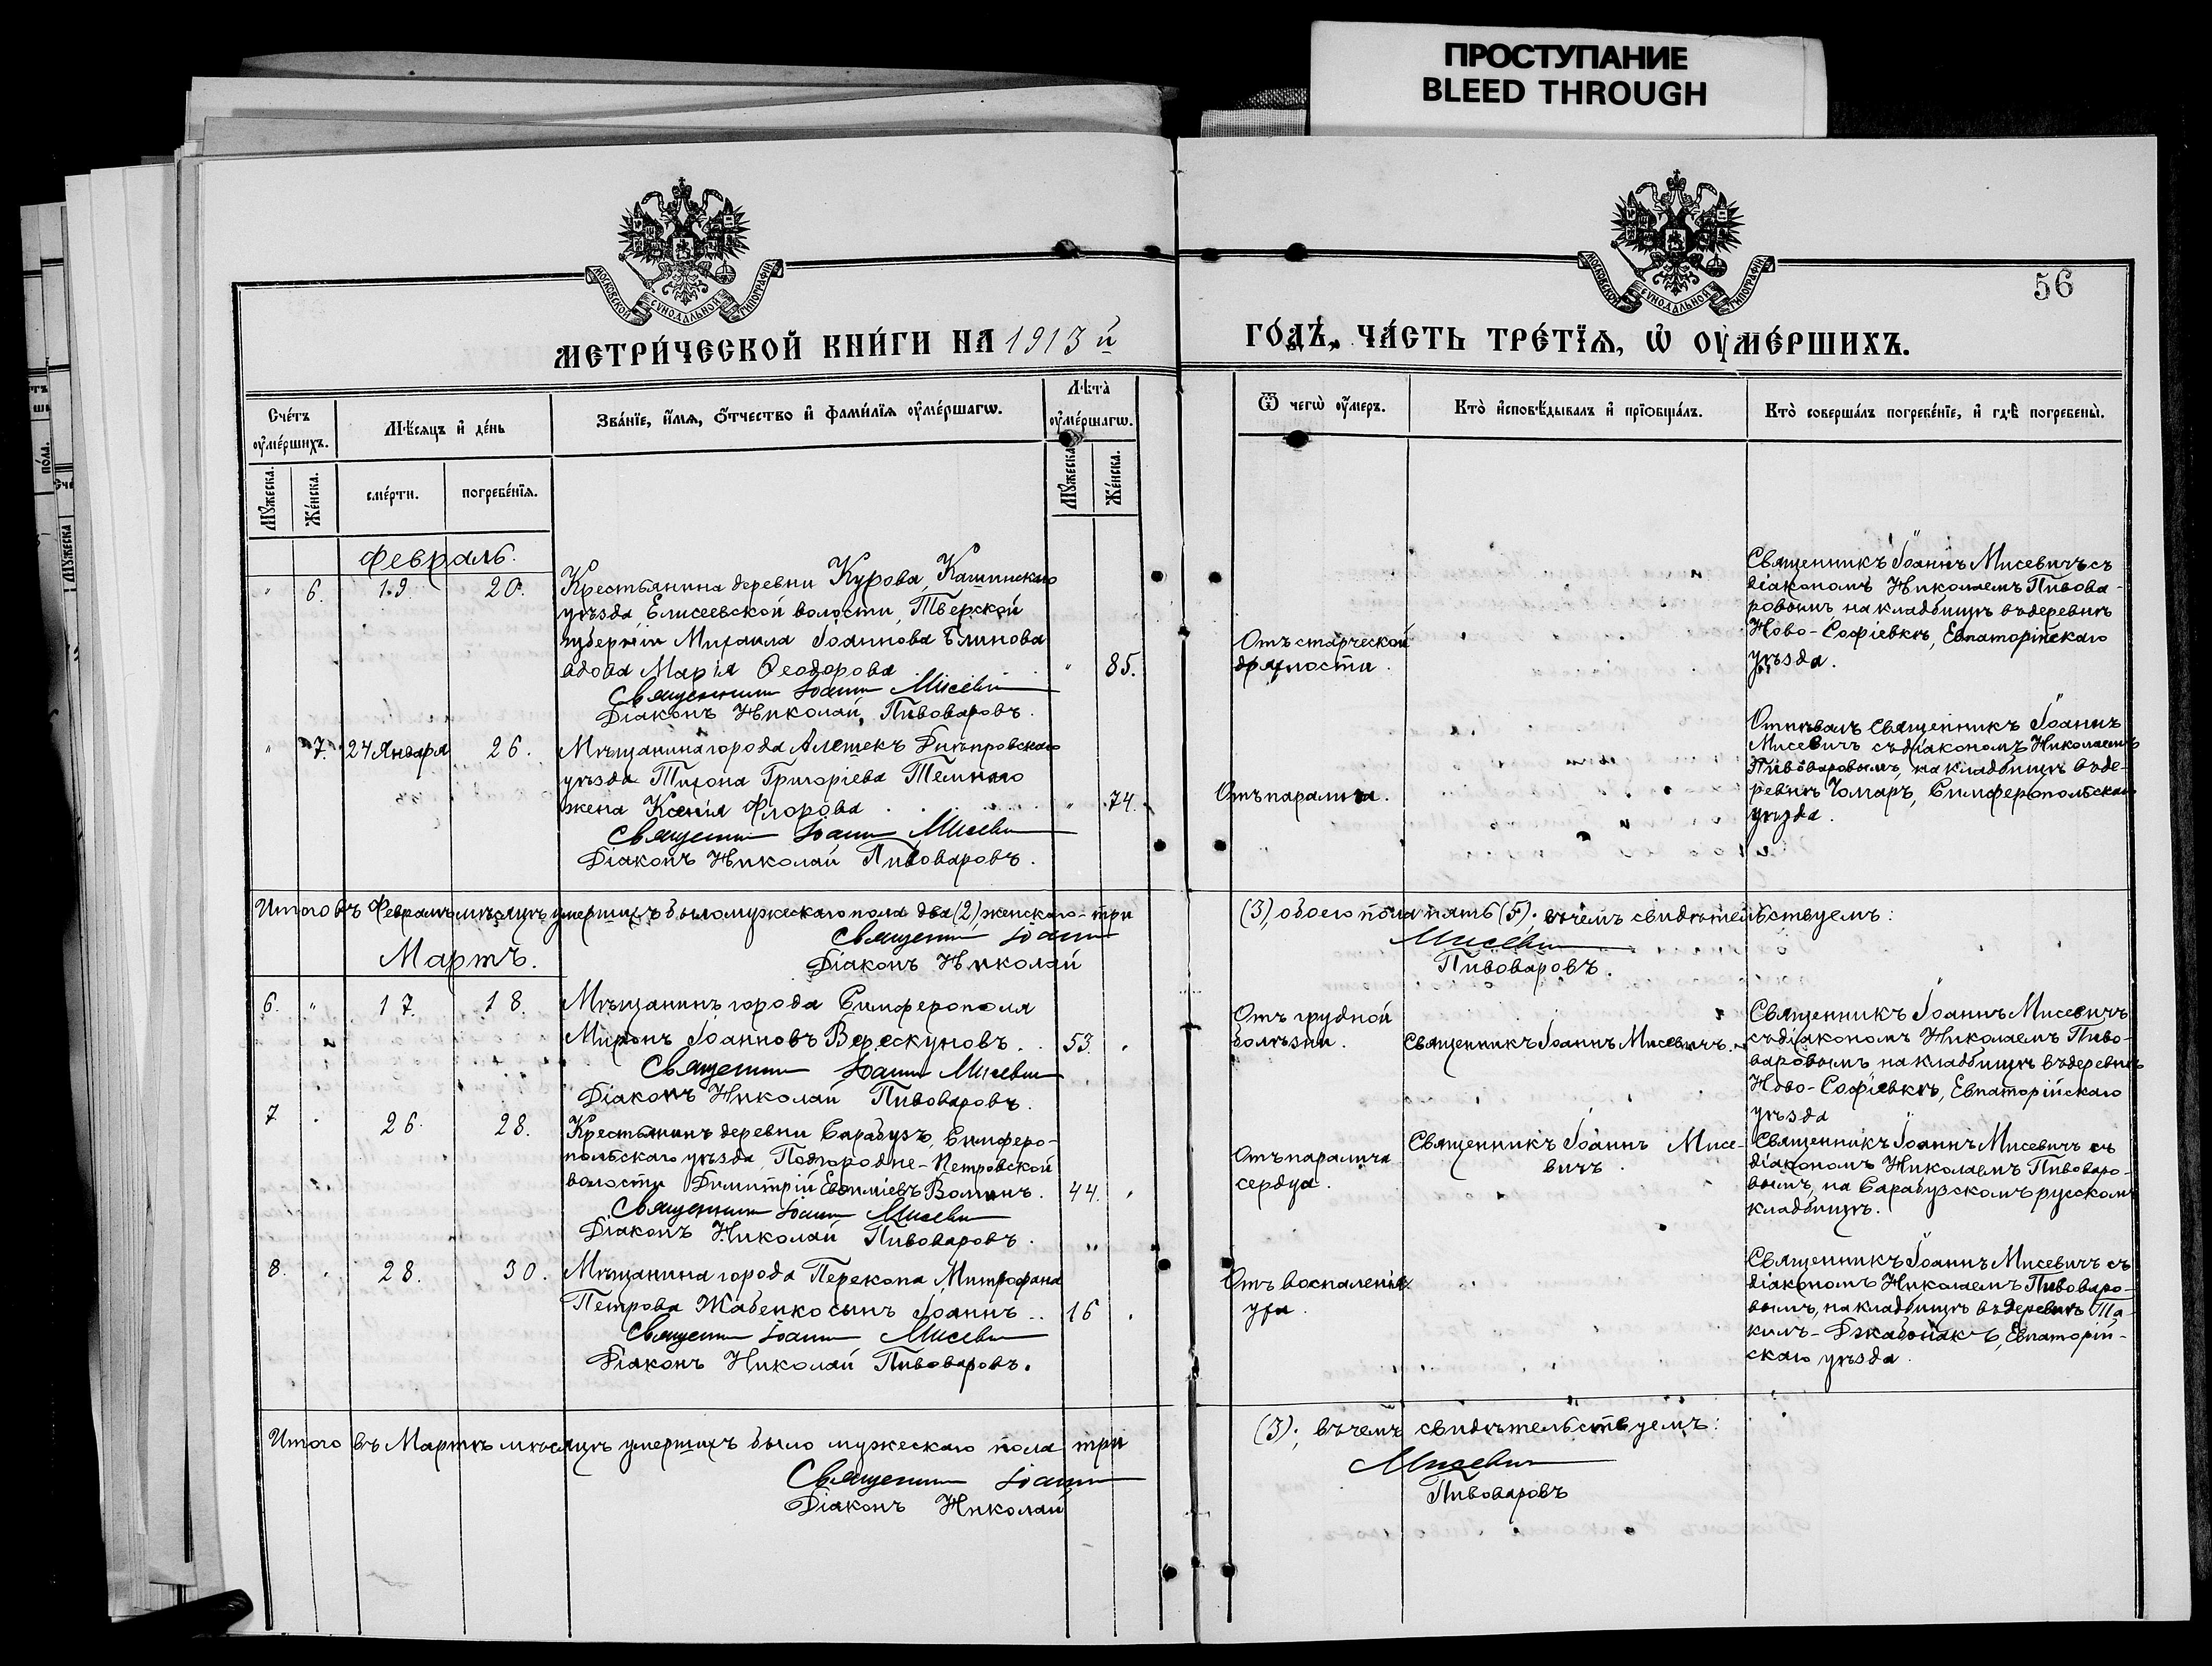 ПРОСТУПАНИЕ
BLEED THROUGH
МОСКОВСКОЙ СУНОДАЛЬНОЙ ТИПОГРАФІИ
МОСКОВСКОЙ СУНОДАЛЬНОЙ ТИПОГРАФІИ
56
МЕТРИ́ЧЕСКОЙ КНИ́ГИ НА 1913 й
ГО́ДЪ, ЧА́СТЬ ТРЕ́ТЇѦ, Ѡ҆ ОУ҆МЕ́РШИХЪ.
Счетъ оумершихъ.
Мѣсяцъ и день
Званіе, имя, отчество и фамилія оумершагѡ.
Лѣта оумершагѡ.
Ѿ чегѡ оумеръ.
Кто исповѣдывалъ и пріобщалъ.
Кто совершалъ погребеніе, и гдѣ погребены.
Мужеска.
Женска.
смерти.
погребенія.
Мужеска
Женска.
Февраль.
" 6. 19. 20.
Крестьянина деревни Курова, Кашинскаго
уѣзда, Елисеевской волости, Тверской
губерніи Михаила Іоаннова Блинова
вдова Марія Ѳеодорова " 85.
Священникъ Іоаннъ Мисевичъ
Діаконъ Николай Пивоваровъ.
Отъ старческой
дряхлости.
Священникъ Іоаннъ Мисевичъ съ
діакономъ Николаемъ Пивова-
ровымъ на кладбищѣ въ деревнѣ
Ново-Софіевкѣ, Евпаторійскаго
уѣзда.
" 7. 24 Января 26.
Мѣщанина города Алешекъ Днѣпровскаго
уѣзда Тихона Григоріева Темнаго
жена Ксенія Флорова " 74.
Священникъ Іоаннъ Мисевичъ
Діаконъ Николай Пивоваровъ.
Отъ паралича.
Отпѣвалъ Священникъ Іоаннъ
Мисевичъ съ діакономъ Николаемъ
Пивоваровымъ, на кладбищѣ въ де-
ревнѣ Чомаръ, Симферопольскаго
уѣзда.
Итого въ Февралѣ мѣсяцѣ умершихъ было мужескаго пола два (2) женскаго - три
(3), обоего пола пять (5); въ чемъ свидѣтельствуемъ:
Священникъ Іоаннъ Мисевичъ
Діаконъ Николай Пивоваровъ.
Мартъ.
6. " 17. 18.
Мѣщанинъ города Симферополя
Миронъ Іоанновъ Верескуновъ. 53. "
Священникъ Іоаннъ Мисевичъ
Діаконъ Николай Пивоваровъ.
Отъ грудной
болѣзни.
Священникъ Іоаннъ Мисевичъ.
Священникъ Іоаннъ Мисевичъ
съ діакономъ Николаемъ Пиво-
варовымъ на кладбищѣ въ деревнѣ
Ново-Софіевкѣ, Евпаторійскаго
уѣзда
7 " 26. 28.
Крестьянинъ деревни Сарабузъ, Симферо-
польскаго уѣзда, Подгородне-Петровской
волости Димитрій Евѳиміевъ Волкинъ. 44. "
Священникъ Іоаннъ Мисевичъ
Діаконъ Николай Пивоваровъ.
Отъ паралича
сердца.
Священникъ Іоаннъ Мисе-
вичъ.
Священникъ Іоаннъ Мисевичъ съ
діакономъ Николаемъ Пивоваро-
вымъ, на Сарабузскомъ русскомъ
кладбищѣ.
8. " 28. 30.
Мѣщанина города Перекопа, Митрофана
Петрова Жабенко сынъ Іоаннъ.. 16 "
Священникъ Іоаннъ Мисевичъ
Діаконъ Николай Пивоваровъ.
Отъ воспаленія
уха.
Священникъ Іоаннъ Мисевичъ съ
діакономъ Николаемъ Пивоваро-
вымъ, на кладбищѣ въ деревнѣ Та-
килъ-Джабонакъ, Евпаторій-
скаго уѣзда.
Итого въ Мартѣ мѣсяцѣ умершихъ было мужескаго пола три
(3); въ чемъ свидѣтельствуемъ:
Священникъ Іоаннъ Мисевичъ
Діаконъ Николай Пивоваровъ